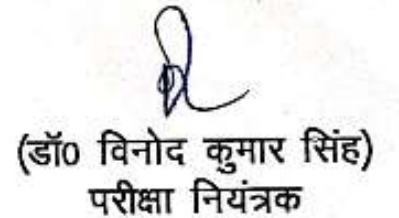 (डॉ0 विनोद कुमार सिंह)
परीक्षा नियंत्रक